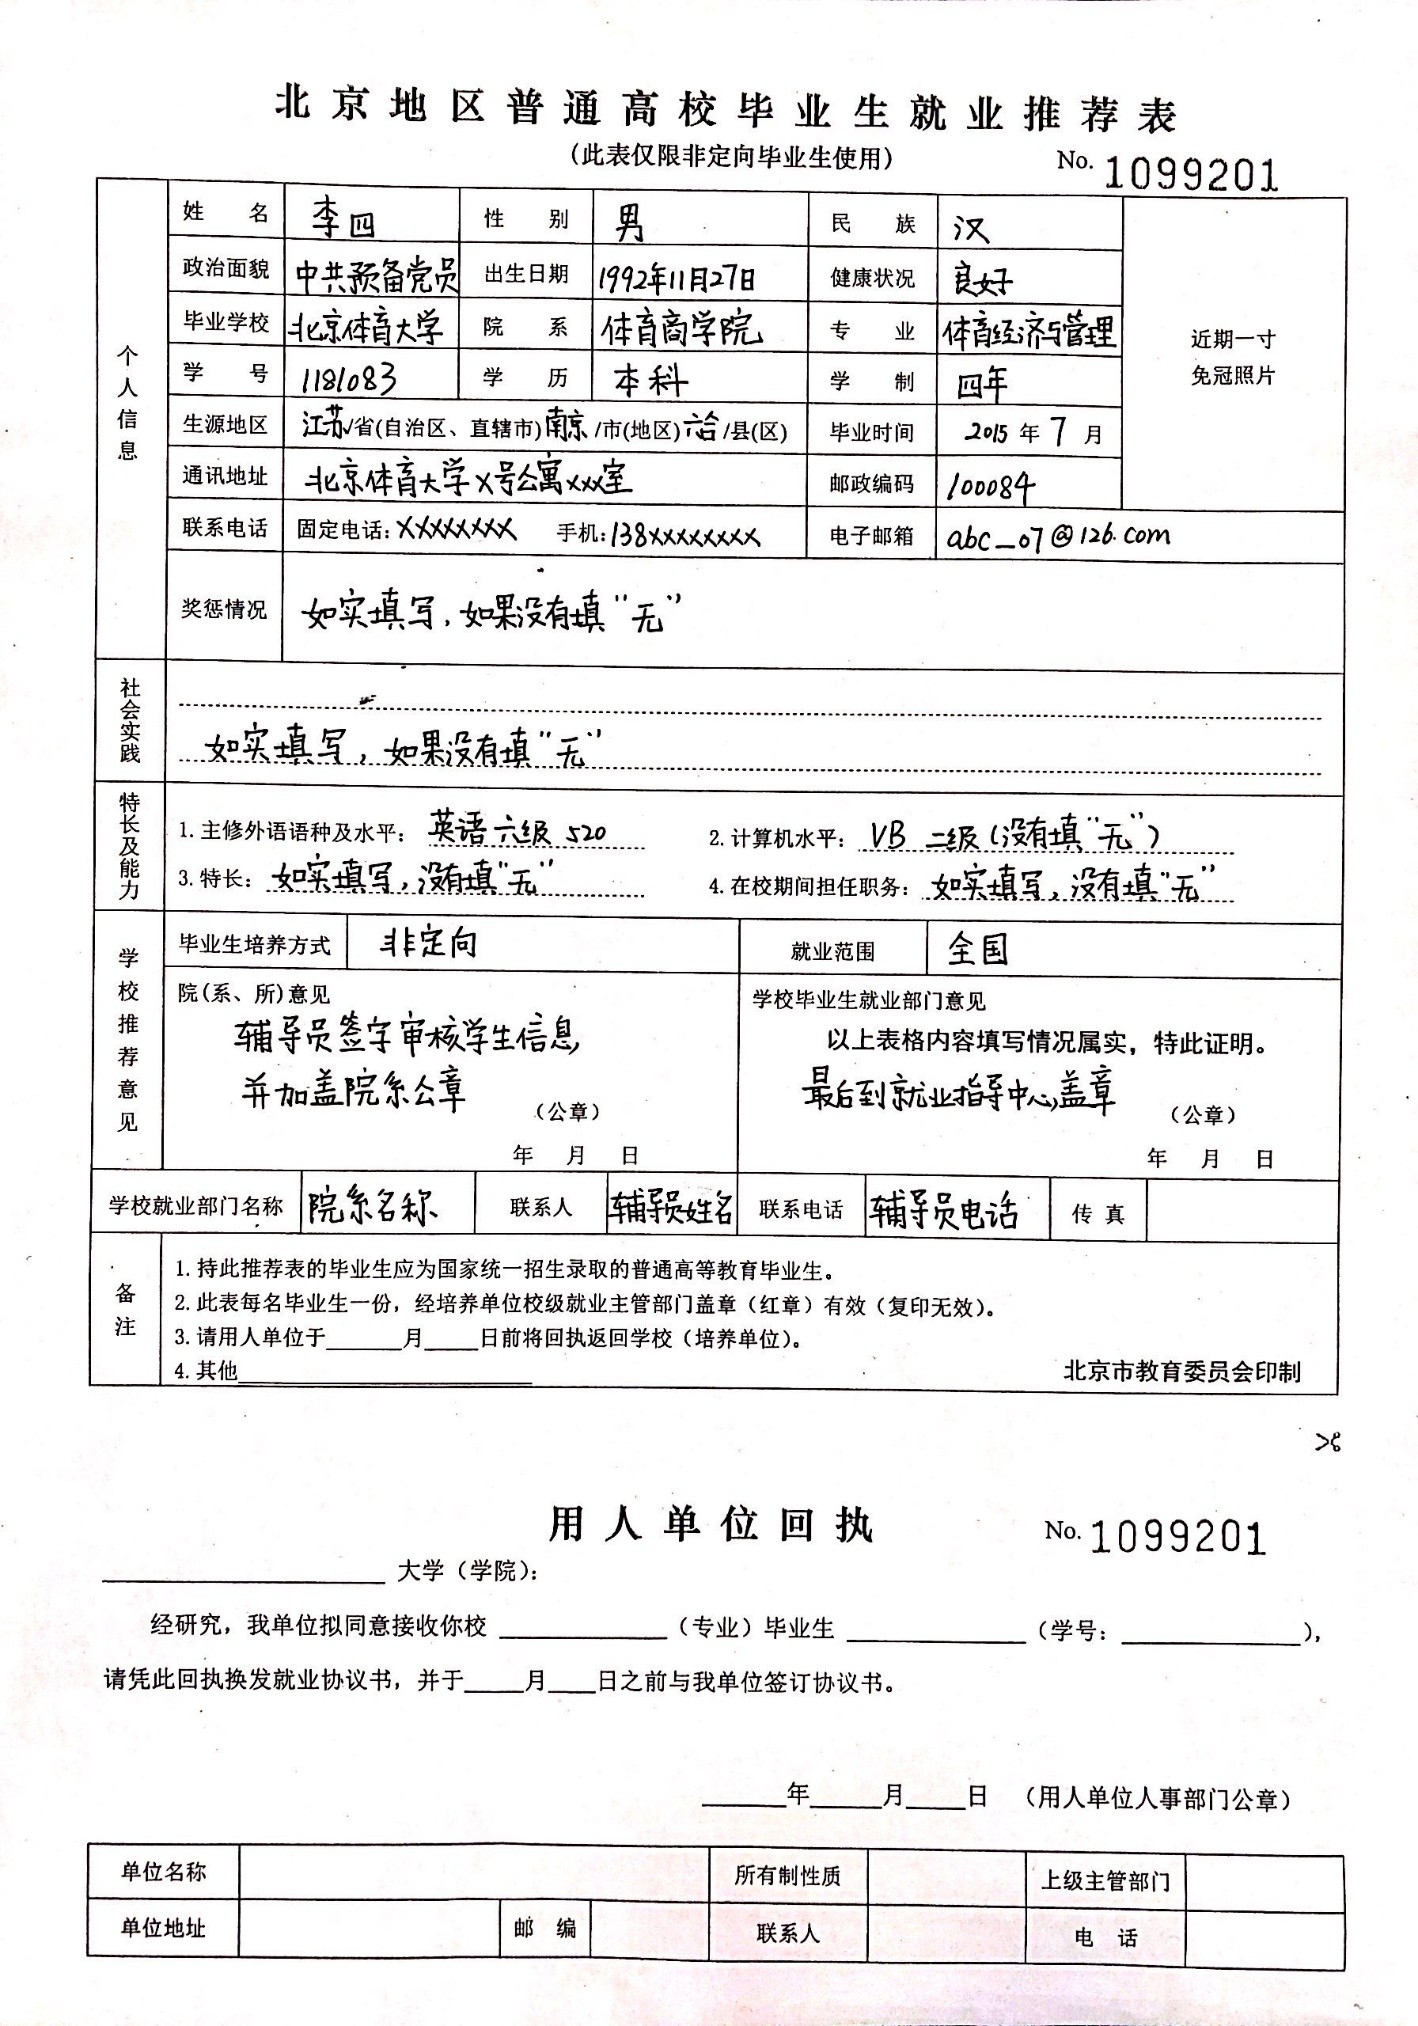 北京地区普通高校毕业生就业推荐表
(此表仅限非定向毕业生使用)
No. 1099201
个人信息
姓 名 李四 性 别 男 民 族 汉
政治面貌 中共预备党员 出生日期 1992年11月27日 健康状况 良好
毕业学校 北京体育大学 院 系 体育商学院 专 业 体育经济与管理
近期一寸
免冠照片
学 号 1181083 学 历 本科 学 制 四年
生源地区 江苏/省(自治区、直辖市)南京/市(地区)六合/县(区) 毕业时间 2015年7月
通讯地址 北京体育大学X号公寓xxx室 邮政编码 100084
联系电话 固定电话:XXXXXXXX 手机:138xxxxxxxx 电子邮箱 abc_07@126.com
奖惩情况 如实填写,如果没有填“无”
社会实践
如实填写,如果没有填“无”
特长及能力
1.主修外语语种及水平: 英语六级 520 2.计算机水平: VB 二级(没有填“无”)
3.特长: 如实填写,没有填“无” 4.在校期间担任职务: 如实填写,没有填“无”
学校推荐意见
毕业生培养方式 非定向 就业范围 全国
院(系、所)意见
辅导员签字审核学生信息,
并加盖院系公章
(公章)
年 月 日
学校毕业生就业部门意见
以上表格内容填写情况属实,特此证明。
最后到就业指导中心盖章
(公章)
年 月 日
学校就业部门名称 院系名称 联系人 辅导员姓名 联系电话 辅导员电话 传真
备注
1.持此推荐表的毕业生应为国家统一招生录取的普通高等教育毕业生。
2.此表每名毕业生一份,经培养单位校级就业主管部门盖章(红章)有效(复印无效)。
3.请用人单位于______月____日前将回执返回学校(培养单位)。
4.其他____________________
北京市教育委员会印制
用人单位回执
No. 1099201
____________________大学(学院):
经研究,我单位拟同意接收你校____________(专业)毕业生____________(学号:____________),
请凭此回执换发就业协议书,并于____月____日之前与我单位签订协议书。
______年______月____日 (用人单位人事部门公章)
单位名称 所有制性质 上级主管部门
单位地址 邮 编 联系人 电 话